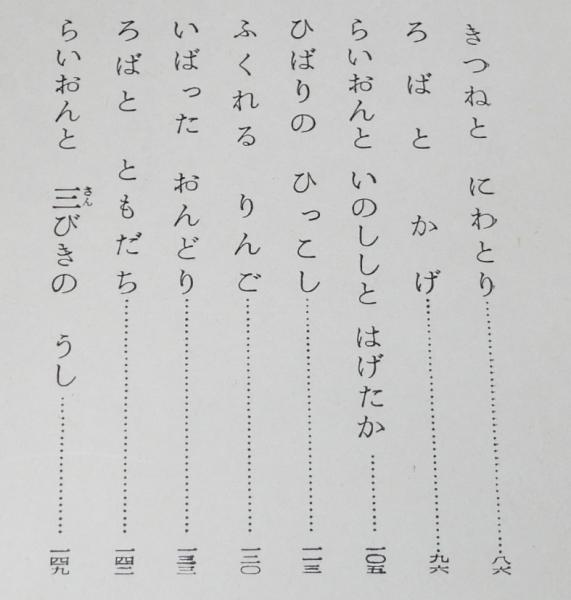 きつねと にわとり……八六
ろばと かげ……九六
らいおんと いのししと はげたか……一〇五
ひばりの ひっこし……一一三
ふくれる りんご……一二〇
いばった おんどり……一三三
ろばと ともだち……一四二
らいおんと 三びきの うし……一四九